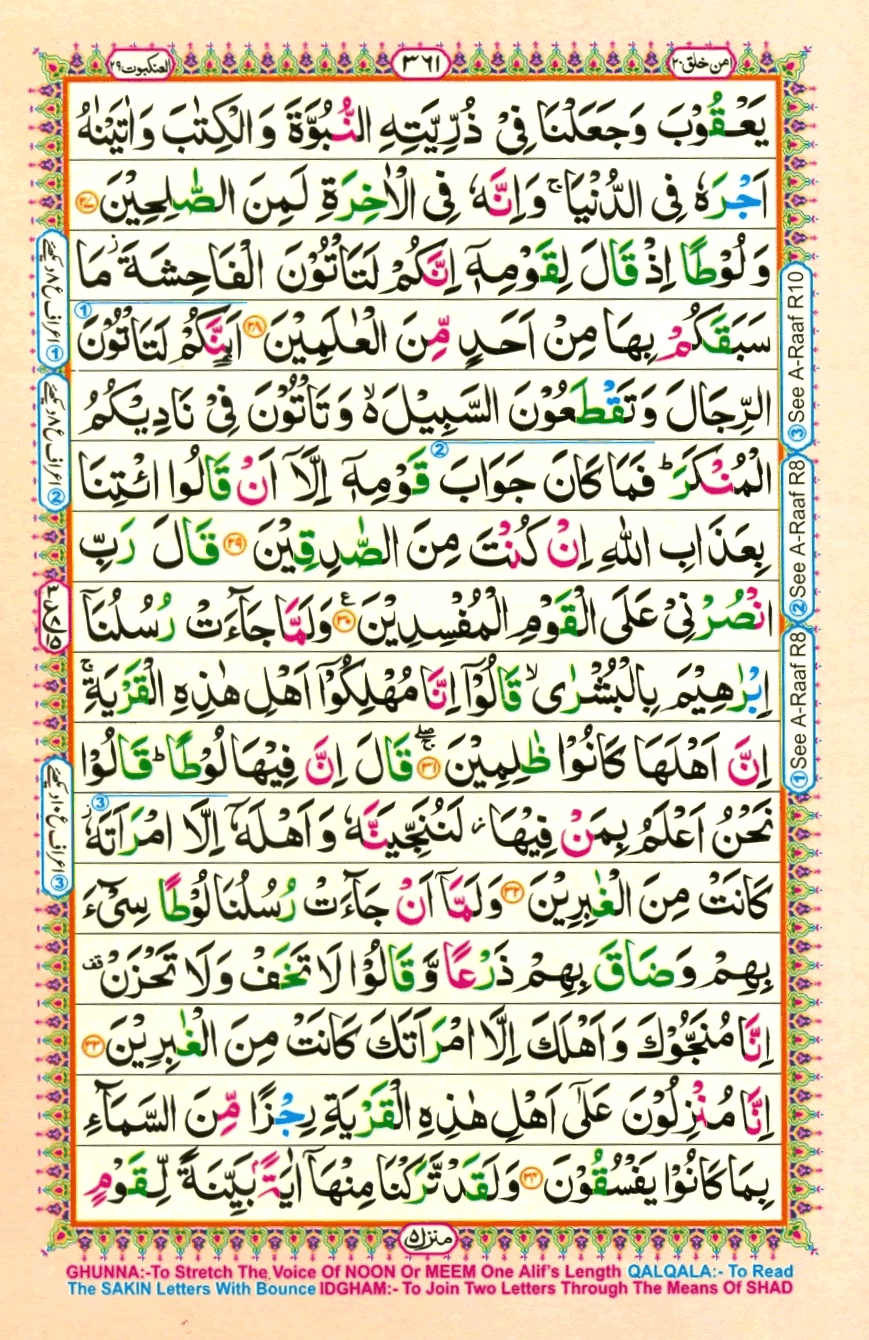 من خلق ٢٠
٣٦١
العنكبوت ٢٩
يَعْقُوْبَ وَجَعَلْنَا فِيْ ذُرِّيَّتِهِ النُّبُوَّةَ وَالْكِتٰبَ وَاٰتَيْنٰهُ
اَجْرَهٗ فِي الدُّنْيَا ۚ وَاِنَّهٗ فِي الْاٰخِرَةِ لَمِنَ الصّٰلِحِيْنَ ٢٧
وَلُوْطًا اِذْ قَالَ لِقَوْمِهٖٓ اِنَّكُمْ لَتَاْتُوْنَ الْفَاحِشَةَ ؗ مَا
سَبَقَكُمْ بِهَا مِنْ اَحَدٍ مِّنَ الْعٰلَمِيْنَ ٢٨ اَىِٕنَّكُمْ لَتَاْتُوْنَ
الرِّجَالَ وَتَقْطَعُوْنَ السَّبِيْلَ ەۙ وَتَاْتُوْنَ فِيْ نَادِيْكُمُ
الْمُنْكَرَ ؕ فَمَا كَانَ جَوَابَ قَوْمِهٖٓ اِلَّآ اَنْ قَالُوا ائْتِنَا
بِعَذَابِ اللّٰهِ اِنْ كُنْتَ مِنَ الصّٰدِقِيْنَ ٢٩ قَالَ رَبِّ
انْصُرْنِيْ عَلَى الْقَوْمِ الْمُفْسِدِيْنَ ٣٠ وَلَمَّا جَآءَتْ رُسُلُنَآ
اِبْرٰهِيْمَ بِالْبُشْرٰى ۙ قَالُوْٓا اِنَّا مُهْلِكُوْٓا اَهْلِ هٰذِهِ الْقَرْيَةِ ۚ
اِنَّ اَهْلَهَا كَانُوْا ظٰلِمِيْنَ ٣١ قَالَ اِنَّ فِيْهَا لُوْطًا ؕ قَالُوْا
نَحْنُ اَعْلَمُ بِمَنْ فِيْهَا ؗ لَنُنَجِّيَنَّهٗ وَاَهْلَهٗٓ اِلَّا امْرَاَتَهٗ ؗ
كَانَتْ مِنَ الْغٰبِرِيْنَ ٣٢ وَلَمَّآ اَنْ جَآءَتْ رُسُلُنَا لُوْطًا سِيْٓءَ
بِهِمْ وَضَاقَ بِهِمْ ذَرْعًا وَّقَالُوْا لَا تَخَفْ وَلَا تَحْزَنْ ۫
اِنَّا مُنَجُّوْكَ وَاَهْلَكَ اِلَّا امْرَاَتَكَ كَانَتْ مِنَ الْغٰبِرِيْنَ ٣٣
اِنَّا مُنْزِلُوْنَ عَلٰٓى اَهْلِ هٰذِهِ الْقَرْيَةِ رِجْزًا مِّنَ السَّمَآءِ
بِمَا كَانُوْا يَفْسُقُوْنَ ٣٤ وَلَقَدْ تَّرَكْنَا مِنْهَآ اٰيَةًۢ بَيِّنَةً لِّقَوْمٍ
③ See A-Raaf R10
② See A-Raaf R8
① See A-Raaf R8
① اعراف ع ٨ دیکھئے
② اعراف ع ٨ دیکھئے
③ اعراف ع ١٠ دیکھئے
منزل ٥
GHUNNA:-To Stretch The Voice Of NOON Or MEEM One Alif's Length QALQALA:- To Read
The SAKIN Letters With Bounce IDGHAM:- To Join Two Letters Through The Means Of SHAD